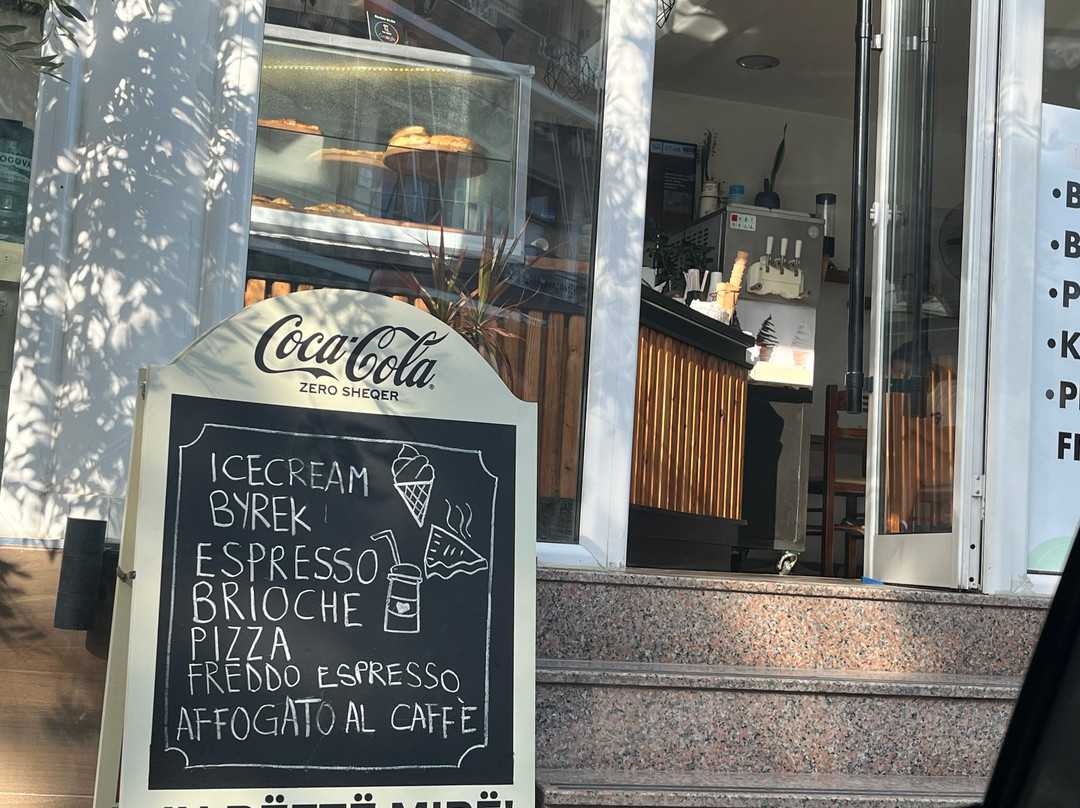 Coca-Cola
ZERO SHEQER
ICECREAM
BYREK
ESPRESSO
BRIOCHE
PIZZA
FREDDO ESPRESSO
AFFOGATO AL CAFFÈ